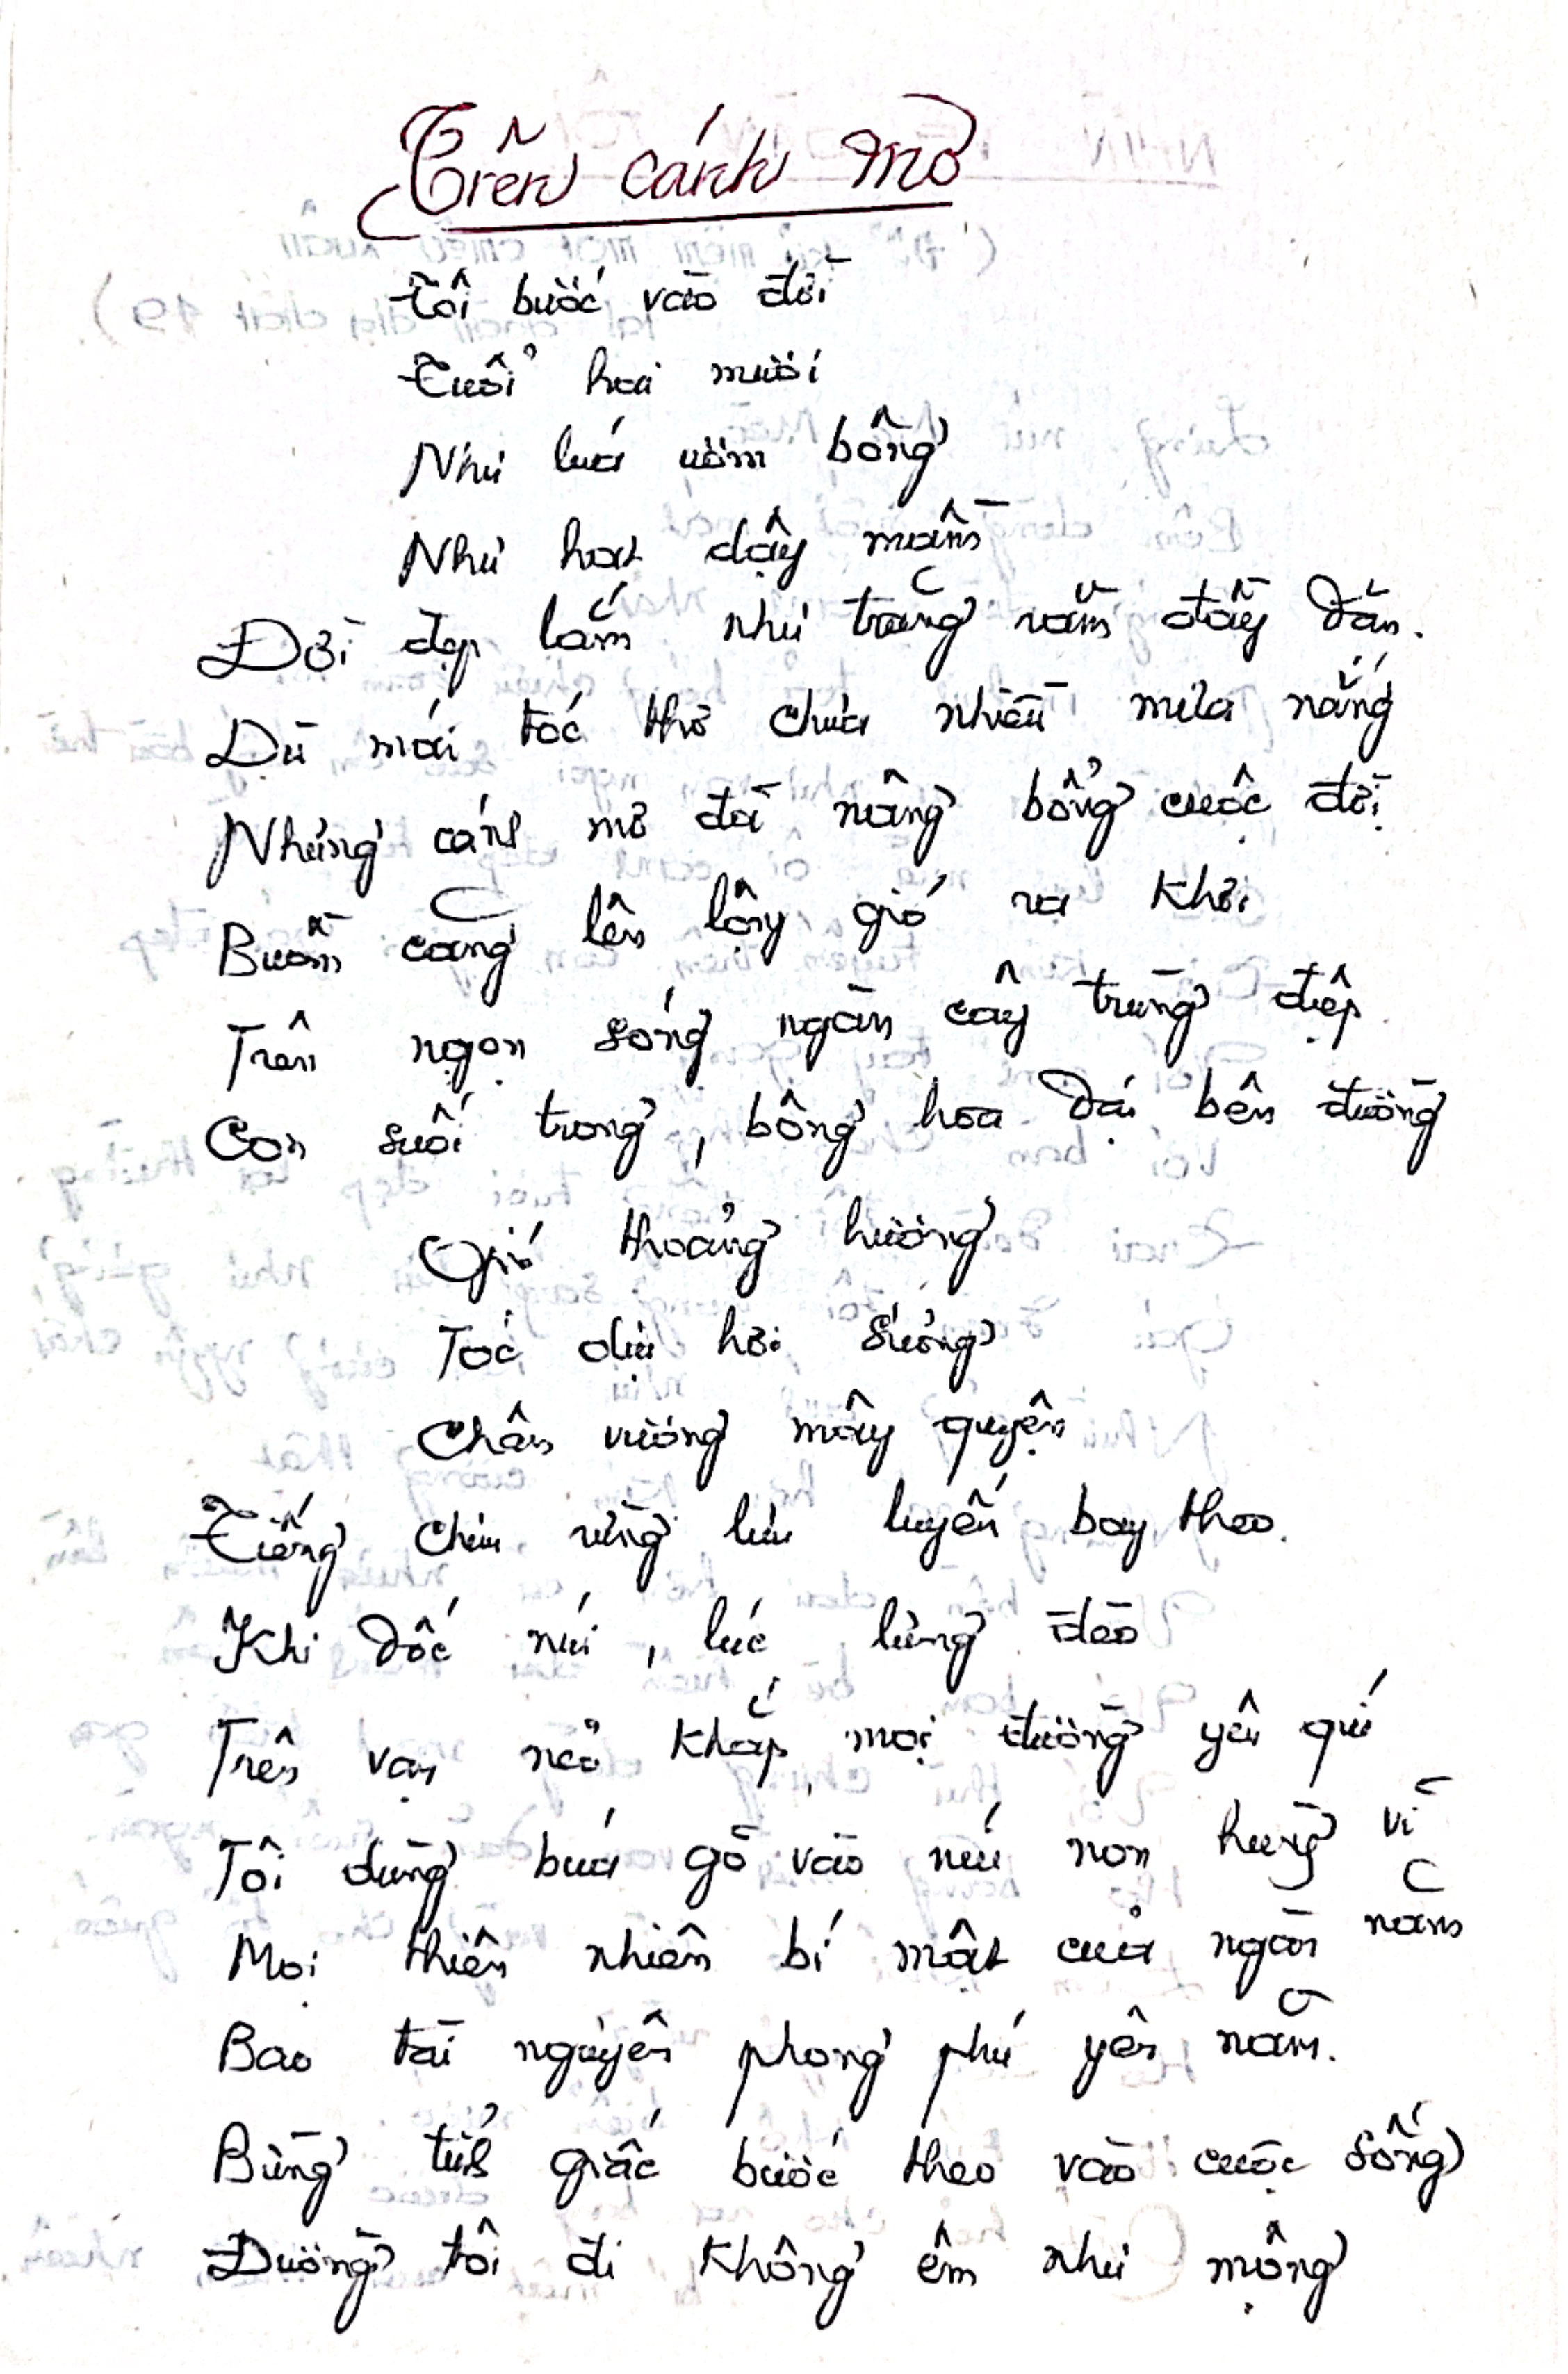 Trên cánh mơ
Tôi bước vào đời
Tuổi hai mươi
Như lúa ươm bông
Như hạt dậy mầm
Đời đẹp lắm như trăng rằm đầy dần.
Dù mái tóc thơ chưa nhiều mưa nắng
Những cánh mơ đã nâng bổng cuộc đời
Buồm căng lên lộng gió ra khơi
Trên ngọn sóng ngàn cây trùng điệp
Con suối trong, bông hoa dại bên đường
Gió thoảng hương
Tóc dịu hơi sương
Chân vương mây quyện
Tiếng chim rừng lưu luyến bay theo.
Khi dốc núi, lúc lưng đèo
Trên vạn nẻo khắp mọi đường yêu quí
Tôi dùng búa gõ vào núi non hùng vĩ
Mọi thiên nhiên bí mật của ngàn năm
Bao tài nguyên phong phú yên nằm.
Bừng tỉnh giấc bước theo vào cuộc sống
Đường tôi đi không êm như mộng